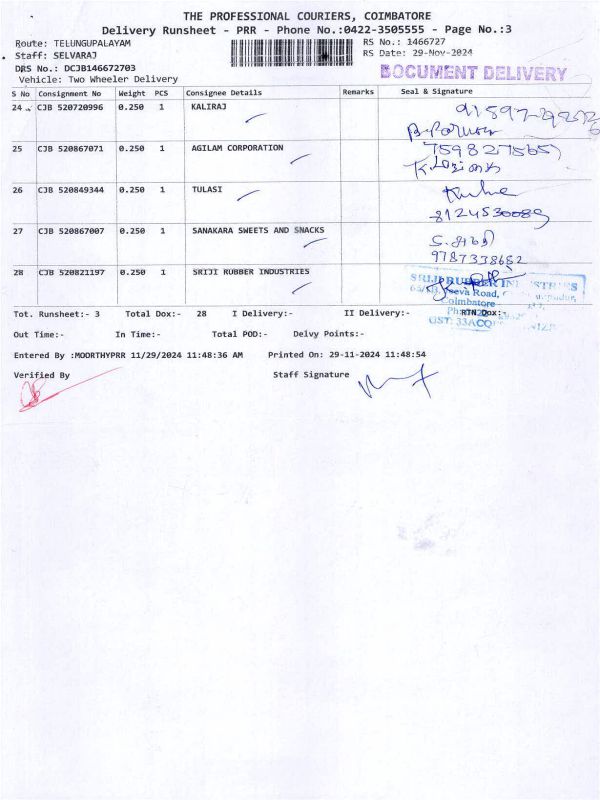 THE PROFESSIONAL COURIERS, COIMBATORE
Delivery Runsheet - PRR - Phone No.:0422-3505555 - Page No.:3
Route: TELUNGUPALAYAM
RS No.: 1466727
Staff: SELVARAJ
RS Date: 29-Nov-2024
DRS No.: DCJB146672703
DOCUMENT DELIVERY
Vehicle: Two Wheeler Delivery
S No Consignment No Weight PCS Consignee Details Remarks Seal & Signature
24 CJB 520720996 0.250 1 KALIRAJ
25 CJB 520867071 0.250 1 AGILAM CORPORATION
26 CJB 520849344 0.250 1 TULASI
8124530089
27 CJB 520867007 0.250 1 SANAKARA SWEETS AND SNACKS
9787338682
28 CJB 520821197 0.250 1 SRIJI RUBBER INDUSTRIES
SRIJI RUBBER INDUSTRIES
Seva Road,
Coimbatore
GST: 33ACQ
Tot. Runsheet:- 3 Total Dox:- 28 I Delivery:- II Delivery:- RTN Dox:-
Out Time:- In Time:- Total POD:- Delvy Points:-
Entered By :MOORTHYPRR 11/29/2024 11:48:36 AM Printed On: 29-11-2024 11:48:54
Verified By Staff Signature